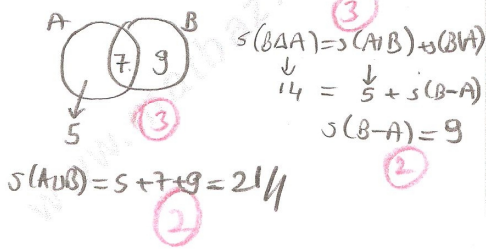 A B
7 9
5
3
3
s(B△A)=s(A\B)+s(B\A)
14 = 5 + s(B-A)
s(B-A) = 9
2
s(A∪B) = 5+7+9 = 21//
2